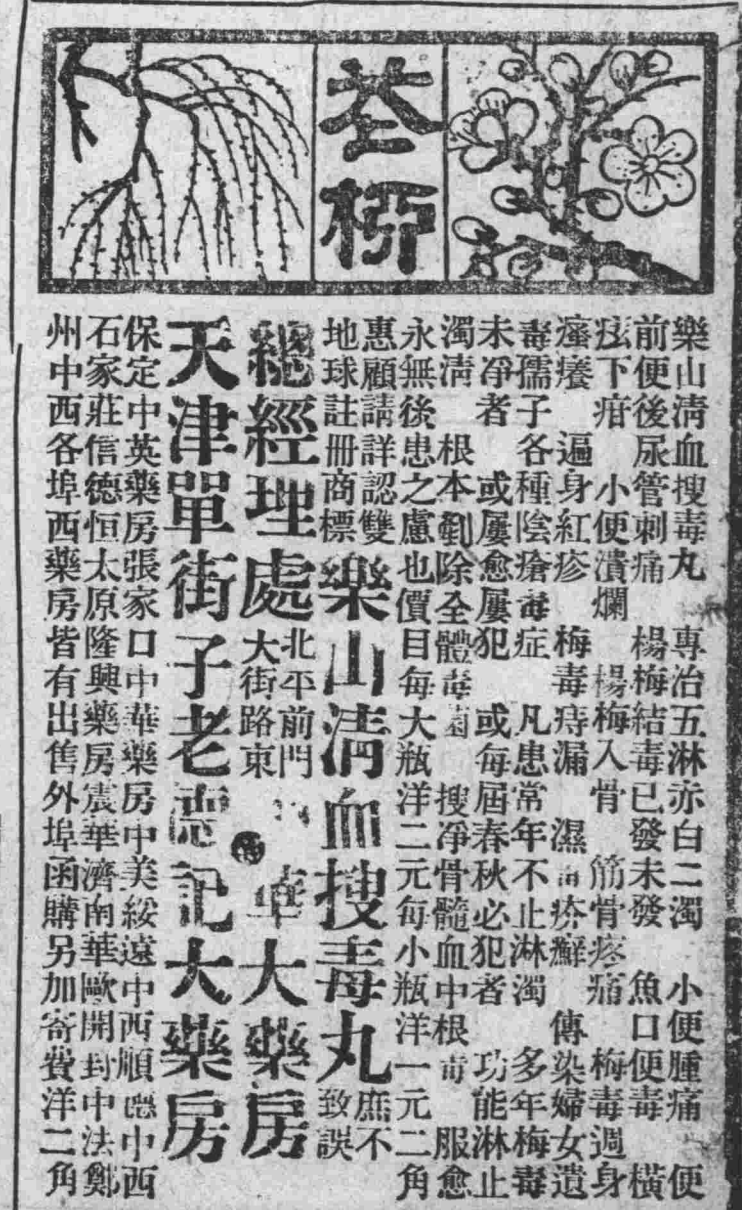 花柳
樂山淸血搜毒丸 專治五淋赤白二濁 小便腫痛 便
前便後尿管刺痛 楊梅結毒已發未發 魚口便毒 橫
痃下疳 小便潰爛 楊梅入骨 筋骨疼痛 梅毒週身
瘙癢 遍身紅疹 梅毒痔漏 濕毒疥癬 傳染婦女遺
毒孺子各種陰瘡毒症 凡患常年不止淋濁 多年梅毒
未凈者 或屢愈屢犯 或每屆春秋必犯者 功能淋止
濁淸 根本剷除全體毒菌 搜凈骨髓血中根毒 服愈
永無後患之慮也價目每大瓶洋二元每小瓶洋一元二角
惠顧請詳認雙
地球註册商標
樂山淸血搜毒丸
庶不
致誤
總經理處
北平前門
大街路東
華大藥房
天津單街子老德記大藥房
保定中英藥房張家口中華藥房中美綏遠中西順德中西
石家莊信德恒太原隆興藥房震華濟南華歐開封中法鄭
州中西各埠西藥房皆有出售外埠函購另加寄費洋二角